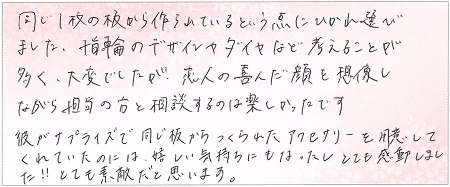 同じ1枚の板から作られているという点にひかれ選び
ました。指輪のデザインやダイヤなど考えることが
多く、大変でしたが、恋人の喜んだ顔を想像し
ながら担当の方と相談するのは楽しかったです
彼がサプライズで同じ板からつくられたアクセサリーを用意して
くれていたのには、嬉しい気持ちにもなったしとても感動しまし
た!!とても素敵だと思います。